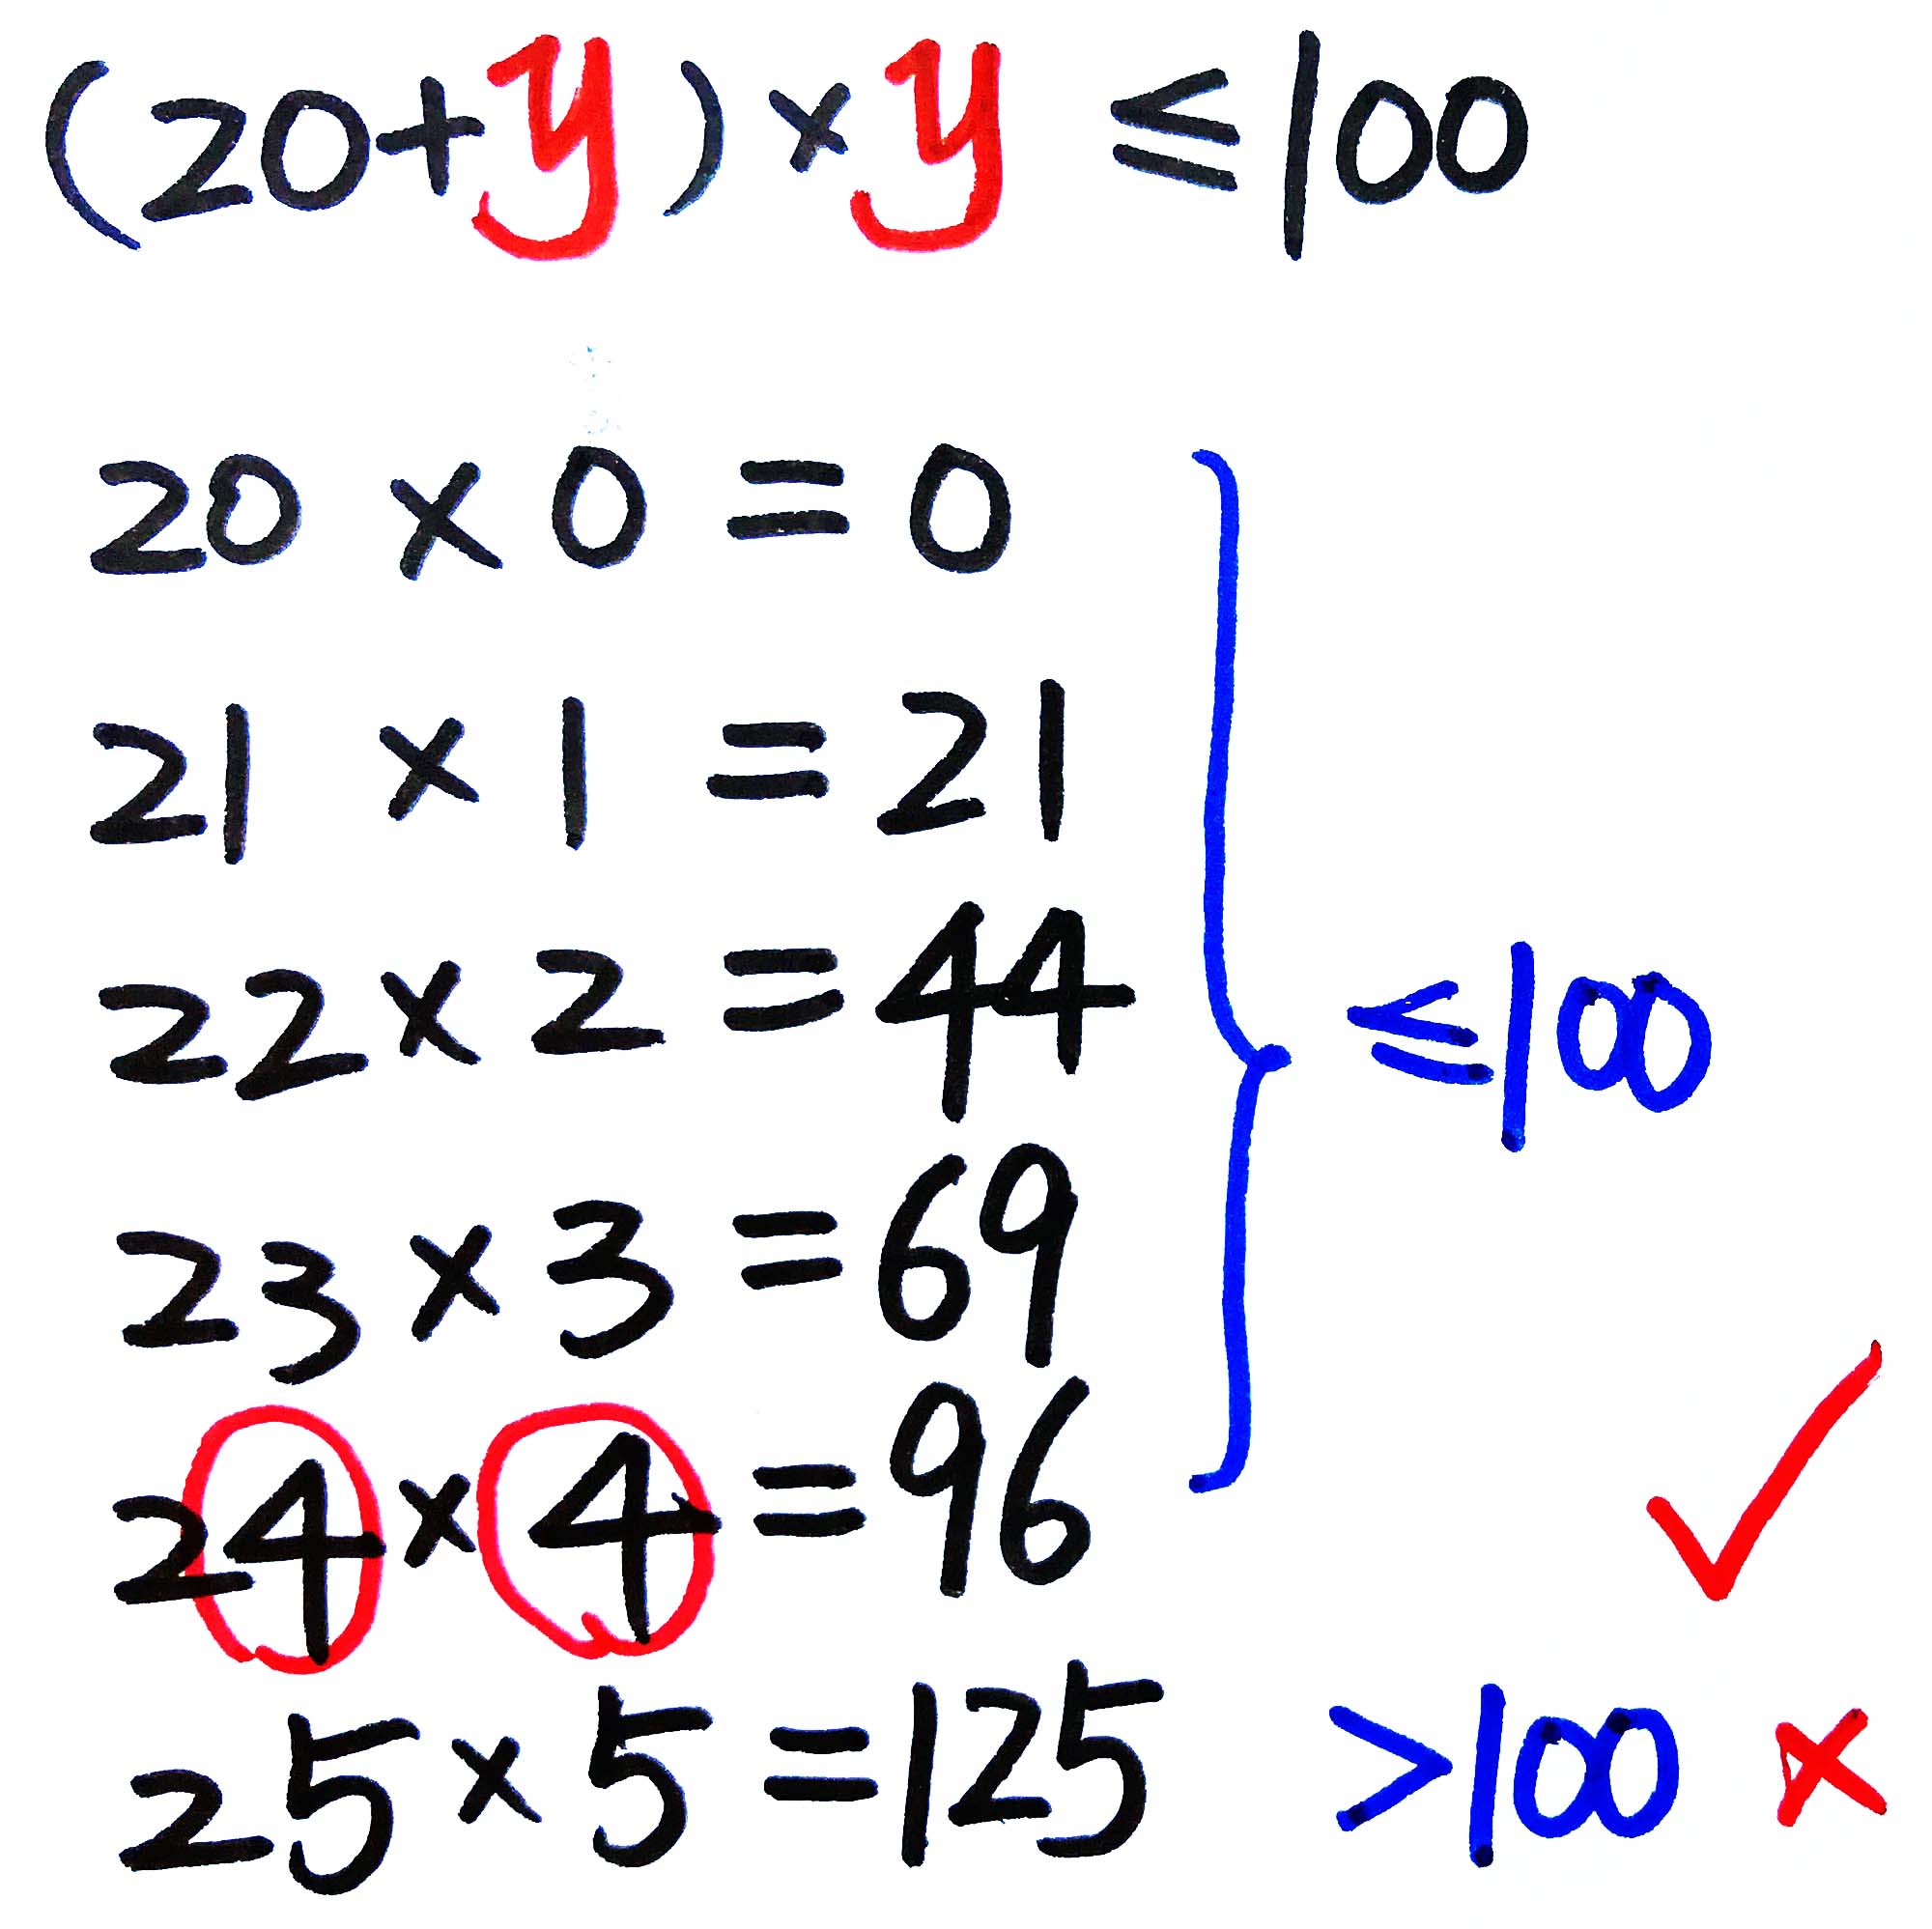 (20+y)×y ≤100
20 × 0 = 0
21 × 1 = 21
22 × 2 = 44
23 × 3 = 69
≤100
24 × 4 = 96 ✓
25 × 5 = 125 >100 ×